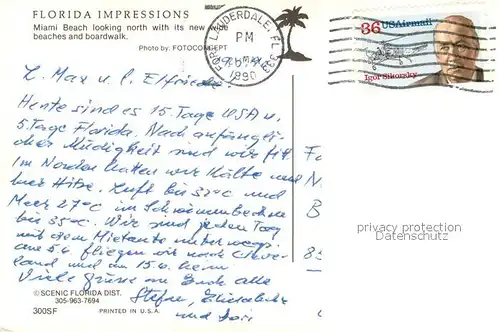 FLORIDA IMPRESSIONS
Miami Beach looking north with its new wide
beaches and boardwalk.
Photo by: FOTOCONCEPT
FORT LAUDERDALE, FL 333
PM
1990
36 USAirmail
Igor Sikorsky
L. Max u. l. Elfriede!
Heute sind es 15 Tage USA u.
5 Tage Florida. Nach anfängli-
cher Müdigkeit sind wir fit.
Im Norden hatten wir Kälte und
hier Hitze. Luft bis 32°C und
Meer 27°C im Schwimmbecken
bis 35°C. Wir sind jeden Tag
mit dem Mietauto unterwegs.
am 5.4. fliegen wir nach
land und am 15.4. heim
Viele Grüsse an Euch alle
Stefan, Elisabeth
und
Fa
N.
B
8
privacy protection
© SCENIC FLORIDA DIST.
305-963-7694
300SF
PRINTED IN U.S.A.